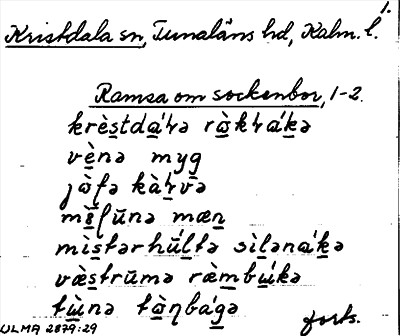 1.
Kristdala sn, Tunaläns hd, Kalm. l.
Ramsa om sockenbor, 1-2.
krès̲tda̲´ɬə rɷ̀kɬá̲kə
vè̲nə myg̲
jɷ̀fə kàɬ̲və
mè̲ʃūnə mæn̲
mìs̲tərhúl̲tə sìl̲əná̲kə
væ̀s̲trūmə ræ̀m̲bu̲´kə
tù̲nə tɷ̀ŋbág̲ə
forts.
ULMA 2879:29